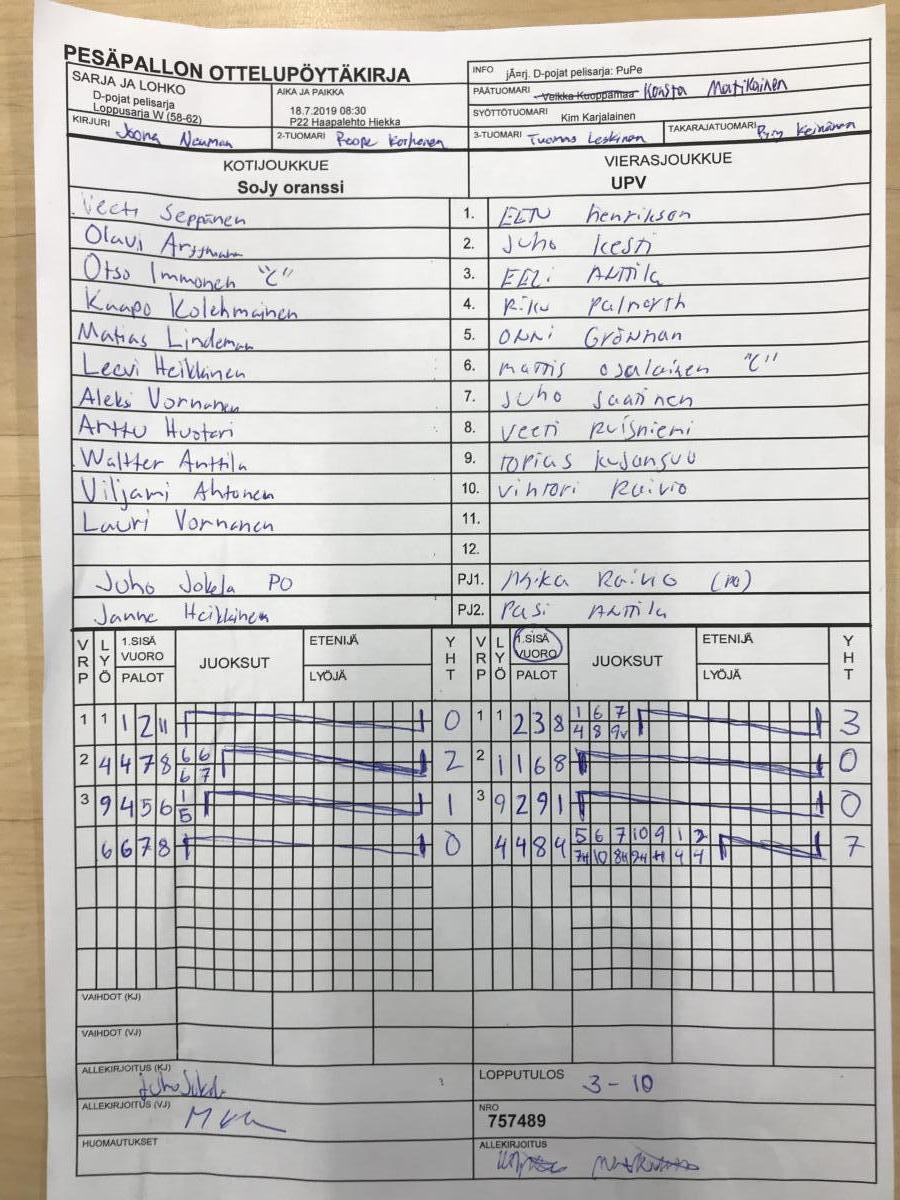 PESÄPALLON OTTELUPÖYTÄKIRJA
SARJA JA LOHKO
D-pojat pelisarja
Loppusarja W (58-62)
AIKA JA PAIKKA
18.7.2019 08:30
P22 Haapalehto Hiekka
INFO jÃ¤rj. D-pojat pelisarja: PuPe
PÄÄTUOMARI Veikka Kuoppamaa Konsta Matikainen
SYÖTTÖTUOMARI Kim Karjalainen
KIRJURI Joona Neuman
2-TUOMARI Roope Korhonen
3-TUOMARI Tuomas Leskinen
TAKARAJATUOMARI Pyry Keinänen
KOTIJOUKKUE
SoJy oranssi
VIERASJOUKKUE
UPV
Veeti Seppänen 1. EETU henrikson
Olavi 2. Juho Kesti
Otso Immonen "C" 3. EELi ANttila
Kaapo Kolehmainen 4. Riku palmroth
Matias Lindeman 5. ONNi Grönman
Leevi Heikkinen 6. mattis osalainen "C"
Aleksi Vornanen 7. Juho Saarinen
Arttu Huotari 8. Veeti Ruisniemi
Waltter Anttila 9. topias kujansuu
Viljami Ahtonen 10. Vihtori Raivio
Lauri Vornanen 11.
12.
Juho Jokela PO PJ1. Mika Raivio (PO)
Janne Heikkinen PJ2. Pasi ANttila
VRP LYÖ 1.SISÄ VUORO PALOT JUOKSUT ETENIJÄ LYÖJÄ YHT VRP LYÖ 1.SISÄ VUORO PALOT JUOKSUT ETENIJÄ LYÖJÄ YHT
1 1 1 2 11 0 1 1 2 3 8 1 6 7 3
4 8 9v
2 4 4 7 8 6 6 2 2 1 1 6 8 0
6 7
3 9 4 5 6 1 1 3 9 2 9 1 0
5
6 6 7 8 0 4 4 8 4 5 6 7 10 9 1 2 7
10 4 4
VAIHDOT (KJ)
VAIHDOT (VJ)
ALLEKIRJOITUS (KJ) Juho Jokela
LOPPUTULOS 3-10
ALLEKIRJOITUS (VJ)
NRO
757489
HUOMAUTUKSET
ALLEKIRJOITUS